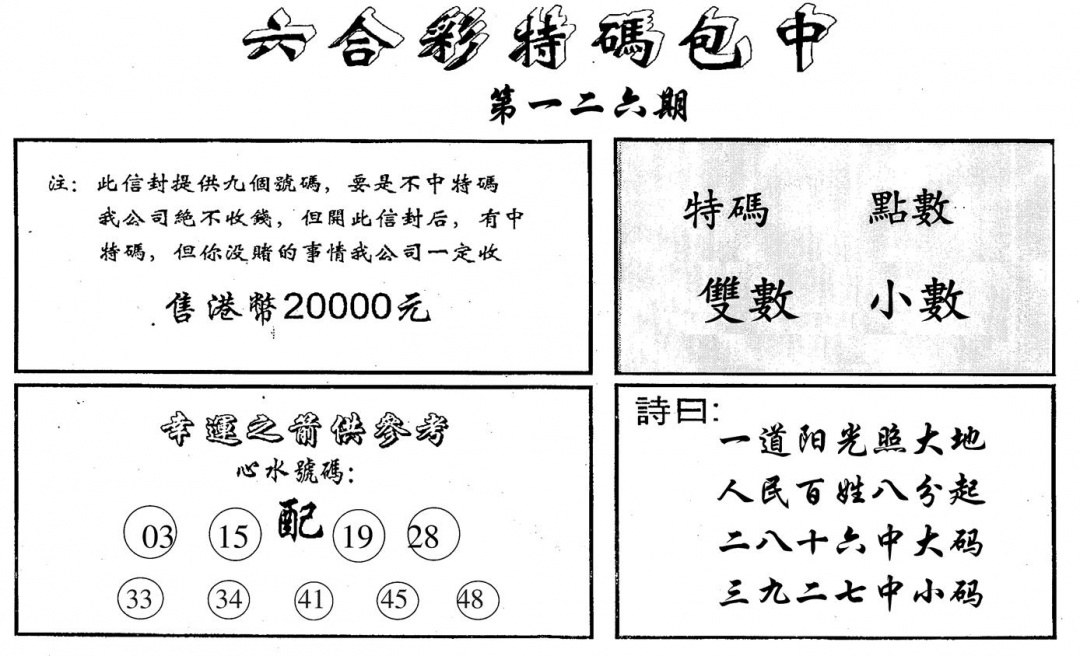 六合彩特碼包中
第一二六期
注：此信封提供九個號碼，要是不中特碼
我公司絕不收錢，但開此信封后，有中
特碼，但你没賭的事情我公司一定收
售港幣20000元
特碼 點數
雙數 小數
幸運之箭供參考
心水號碼：
配
03 15 19 28
33 34 41 45 48
詩曰：
一道阳光照大地
人民百姓八分起
二八十六中大码
三九二七中小码